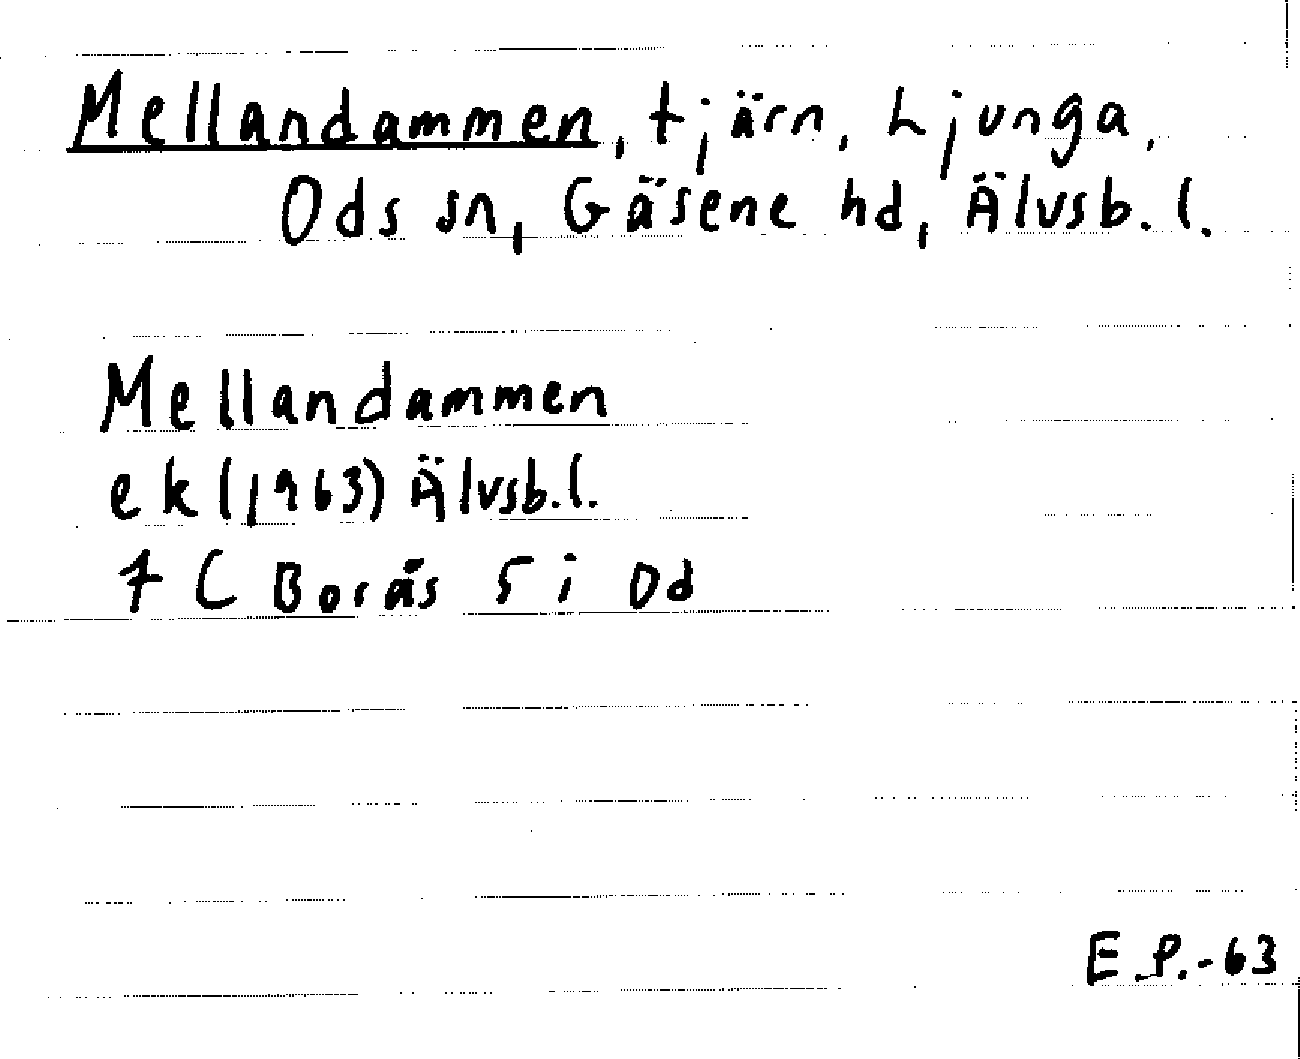 Mellandammen, tjärn, Ljunga,
Ods sn, Gäsene hd, Älvsb. l.
Mellandammen
ek (1963) Älvsb. l.
7 C Borås 5 i Od
E.P.-63